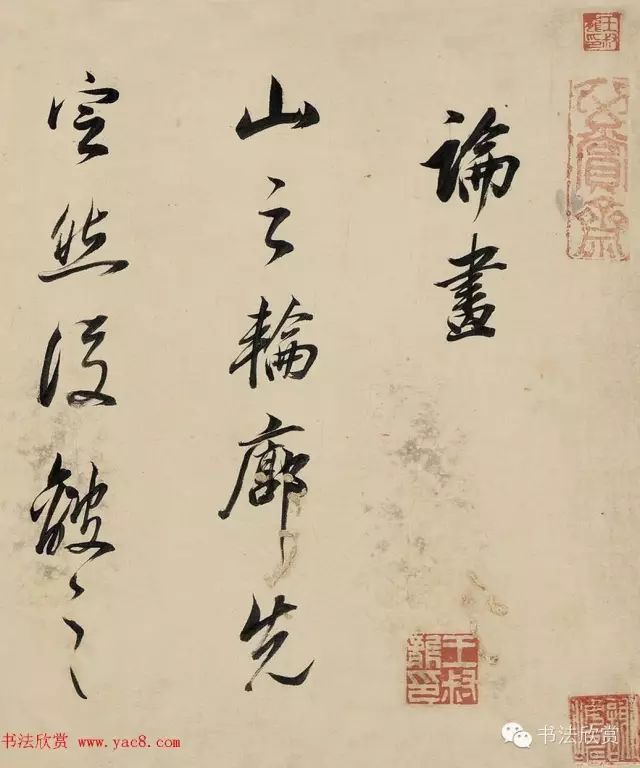 玄賞齋
論畫
山之輪廓先
定然後皴之
书法欣赏 www.yac8.com
书法欣赏